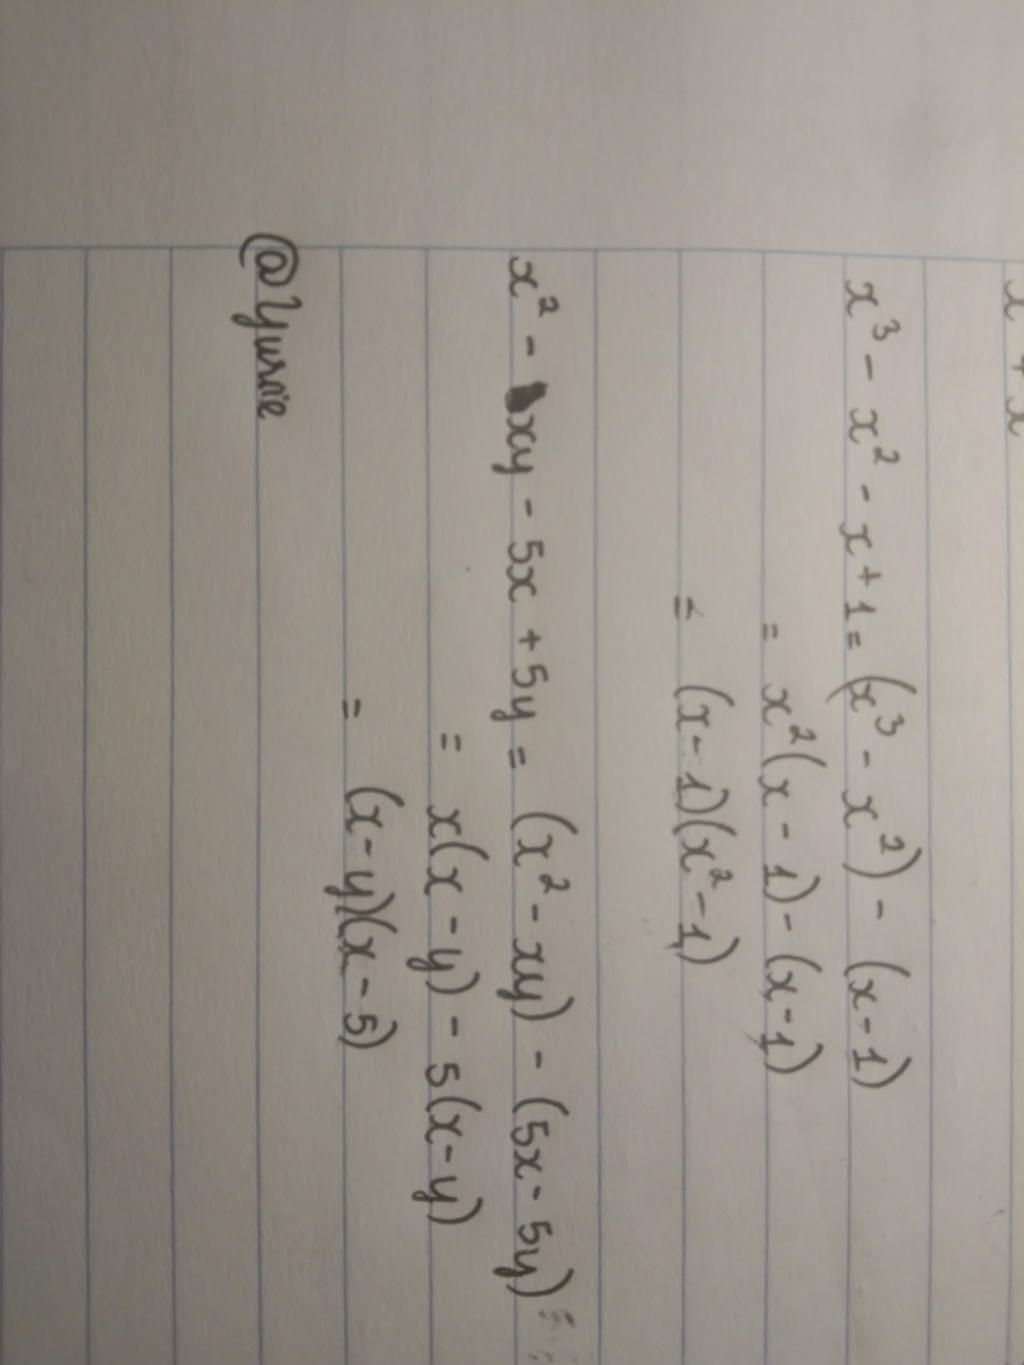 x³ - x² - x + 1 = (x³ - x²) - (x - 1)
= x²(x - 1) - (x - 1)
= (x - 1)(x² - 1)
x² - xy - 5x + 5y = (x² - xy) - (5x - 5y)
= x(x - y) - 5(x - y)
= (x - y)(x - 5)
@Yurnie